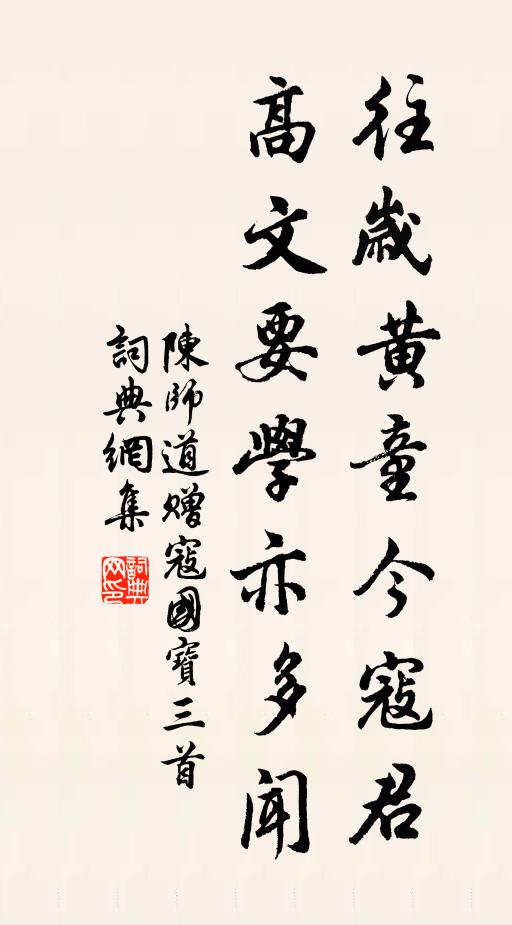 往歲黄童今寇君
高文要學亦多聞
陳師道贈寇國寶三首
詞典網集
詞典网印